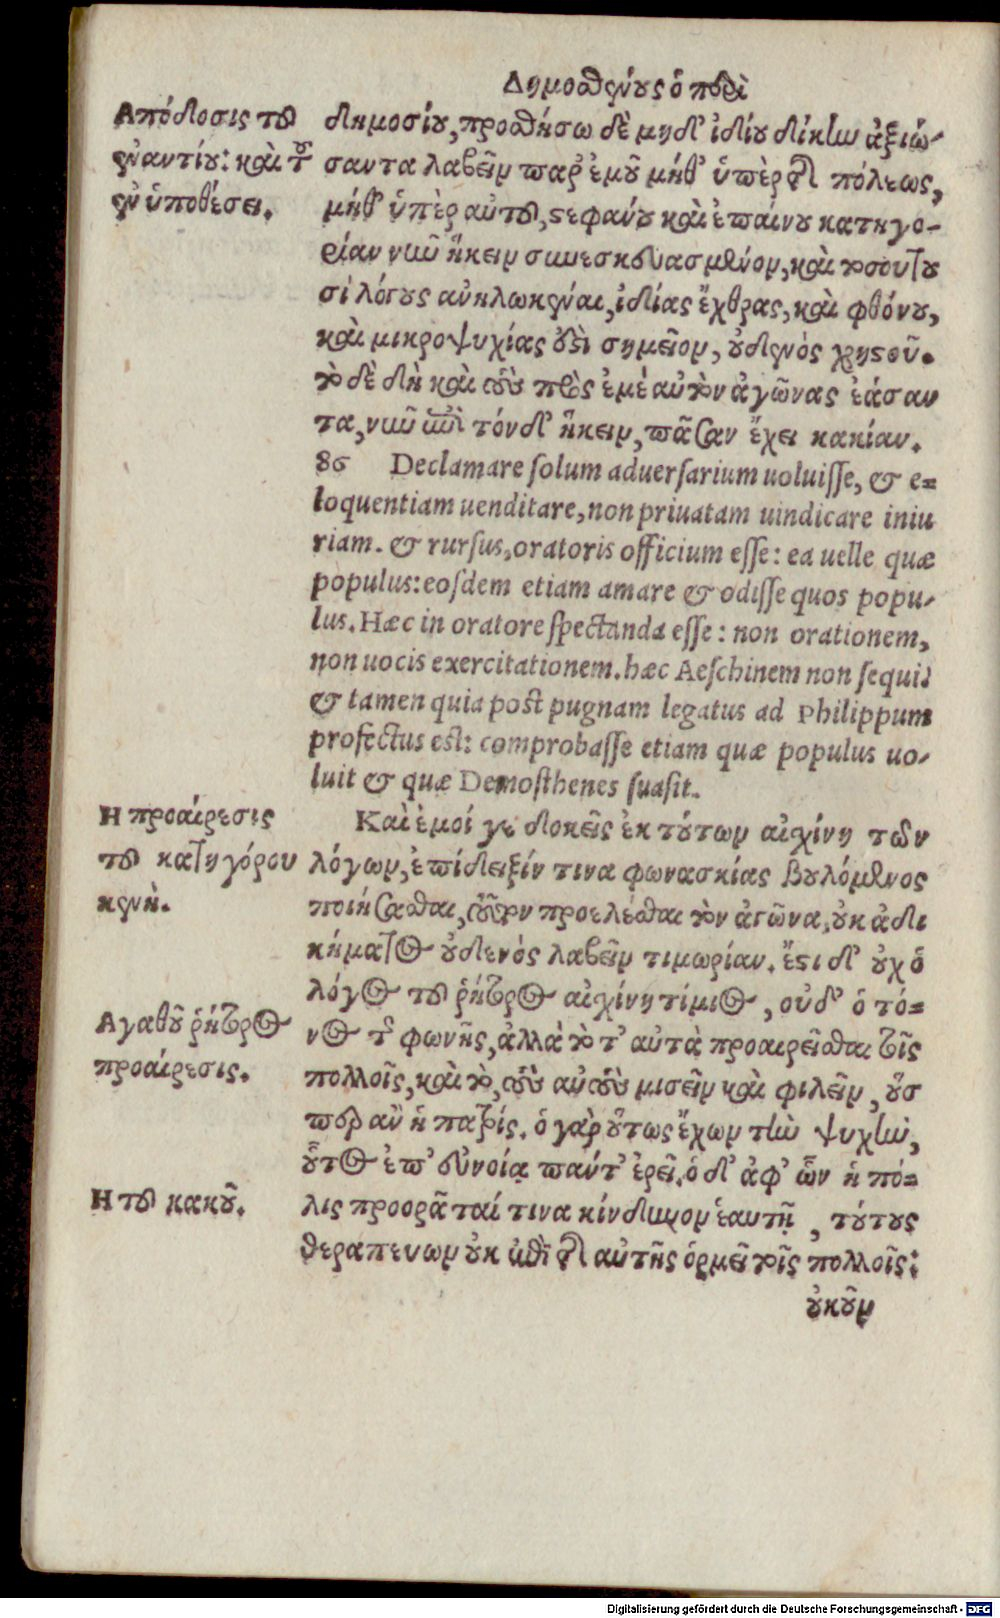 Δημοσθένους ὁ περὶ
Απόδοσις τοῦ
ἐναντίου: καὶ τῆς
ἐν ὑποθέσει.
δημοσίου, προσθήσω δὲ μηδ' ἰδίου δίκην ἀξιώ-
σαντα λαβεῖν παρ' ἐμοῦ μήθ' ὑπὲρ τῆς πόλεως,
μήθ' ὑπὲρ αὑτοῦ, στεφάνου καὶ ἐπαίνου κατηγο-
ρίαν νῦν ἥκειν συνεσκευασμένον, καὶ τοσουτου
σὶ λόγους ἀνηλωκέναι, ἰδίας ἔχθρας, καὶ φθόνου,
καὶ μικροψυχίας ὀστὶ σημεῖον, οὐδενός χρηστοῦ.
τὸ δὲ δὴ καὶ τοὺς πρὸς ἐμέ αὐτὸν ἀγῶνας ἐάσαν
τα, νῦν ἐπὶ τόνδ' ἥκειν, πᾶσαν ἔχει κακίαν.
86 Declamare solum aduersarium uoluisse, & e=
loquentiam uenditare, non priuatam uindicare iniu
riam. & rursus, oratoris officium esse: ea uelle quæ
populus: eosdem etiam amare & odisse quos popu-
lus. Hæc in oratore spectanda esse: non orationem,
non uocis exercitationem. hæc Aeschinem non sequi:
& tamen quia post pugnam legatus ad Philippum
profectus est: comprobasse etiam quæ populus uo-
luit & quæ Demosthenes suasit.
Η προαίρεσις
τοῦ κατηγόρου
κενή.
Καὶ ἐμοί γε δοκεῖς ἐκ τούτων αἰσχίνη τῶν
λόγων, ἐπίδειξίν τινα φωνασκίας βουλόμενος
ποιήσασθαι, τοῦτον προελέσθαι τὸν ἀγῶνα, οὐκ ἀδι
κήματος οὐδενός λαβεῖν τιμωρίαν. ἔστι δ' οὐχ ὁ
λόγος τοῦ ῥήτορος αἰσχίνη τίμιος, οὐδ' ὁ τό=
νος τῆς φωνῆς, ἀλλὰ τὸ τ' αὐτὰ προαιρεῖσθαι τοῖς
πολλοῖς, καὶ τὸ, τοὺς αὐτοὺς μισεῖν καὶ φιλεῖν, οὕσ
περ ἂν ἡ πατρίς. ὁ γὰρ οὕτως ἔχων τὴν ψυχὴν,
οὗτος ἐπ' εὐνοίᾳ παντ' ἐρεῖ. ὁ δ' ἀφ' ὧν ἡ πό=
λις προορᾶταί τινα κίνδυνον ἑαυτῇ, τούτους
θεραπευων οὐκ ἐπὶ τῆς αὐτῆς ὁρμεῖ τοῖς πολλοῖς:
Αγαθοῦ ῥήτορος
προαίρεσις.
Η τοῦ κακοῦ.
οὐκοῦν
Digitalisierung gefördert durch die Deutsche Forschungsgemeinschaft - DFG